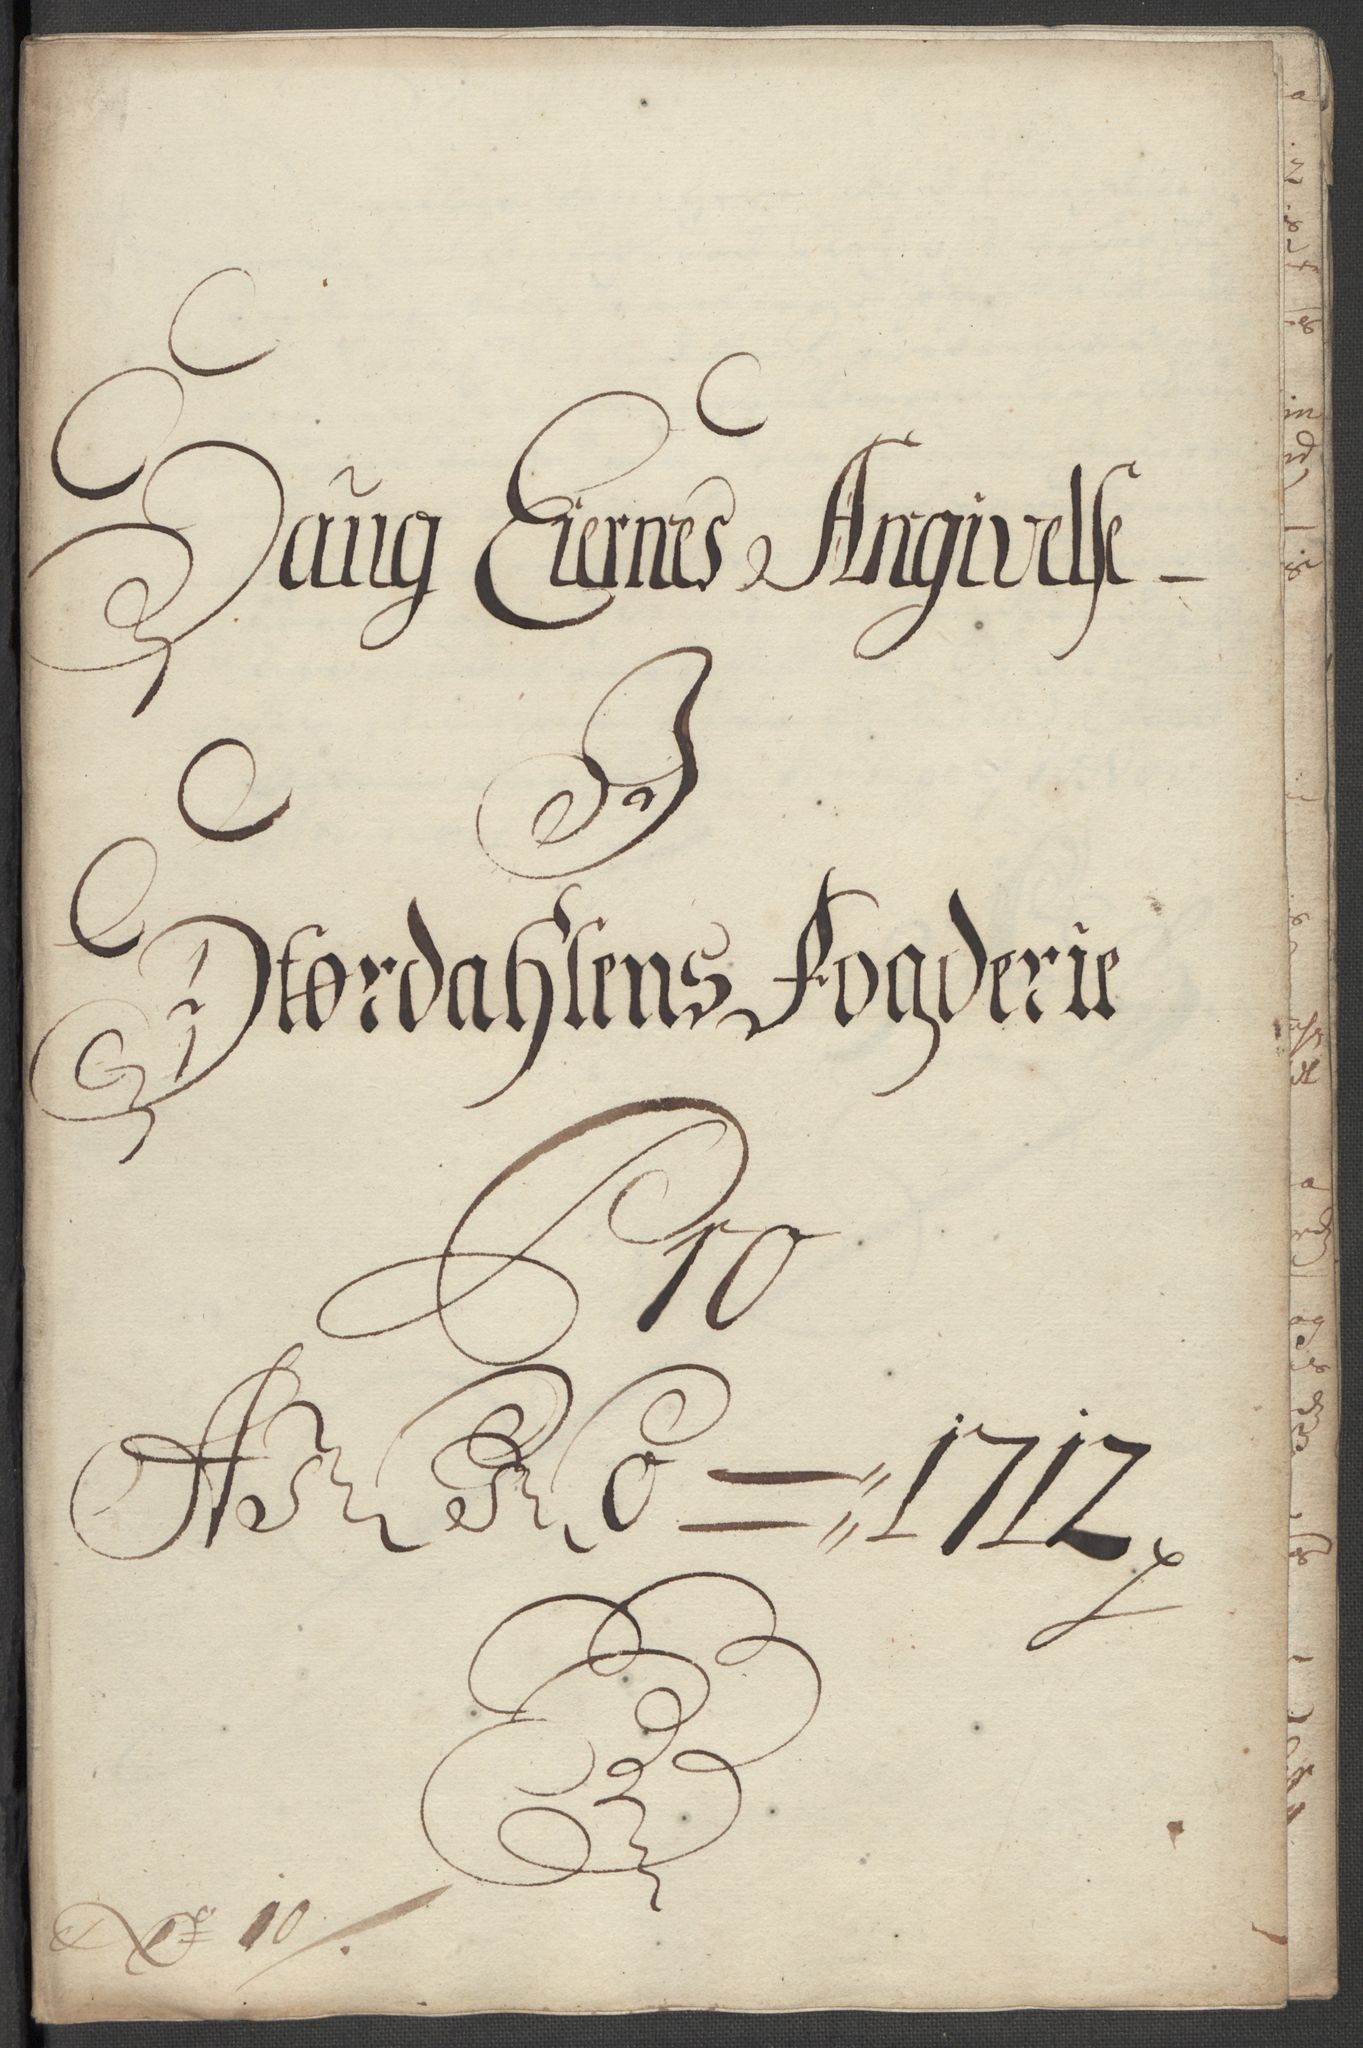 Saug Eiernes Angivelse –
I
Størdahlens Fogderie
Pro
ANNO = 1712
No 10